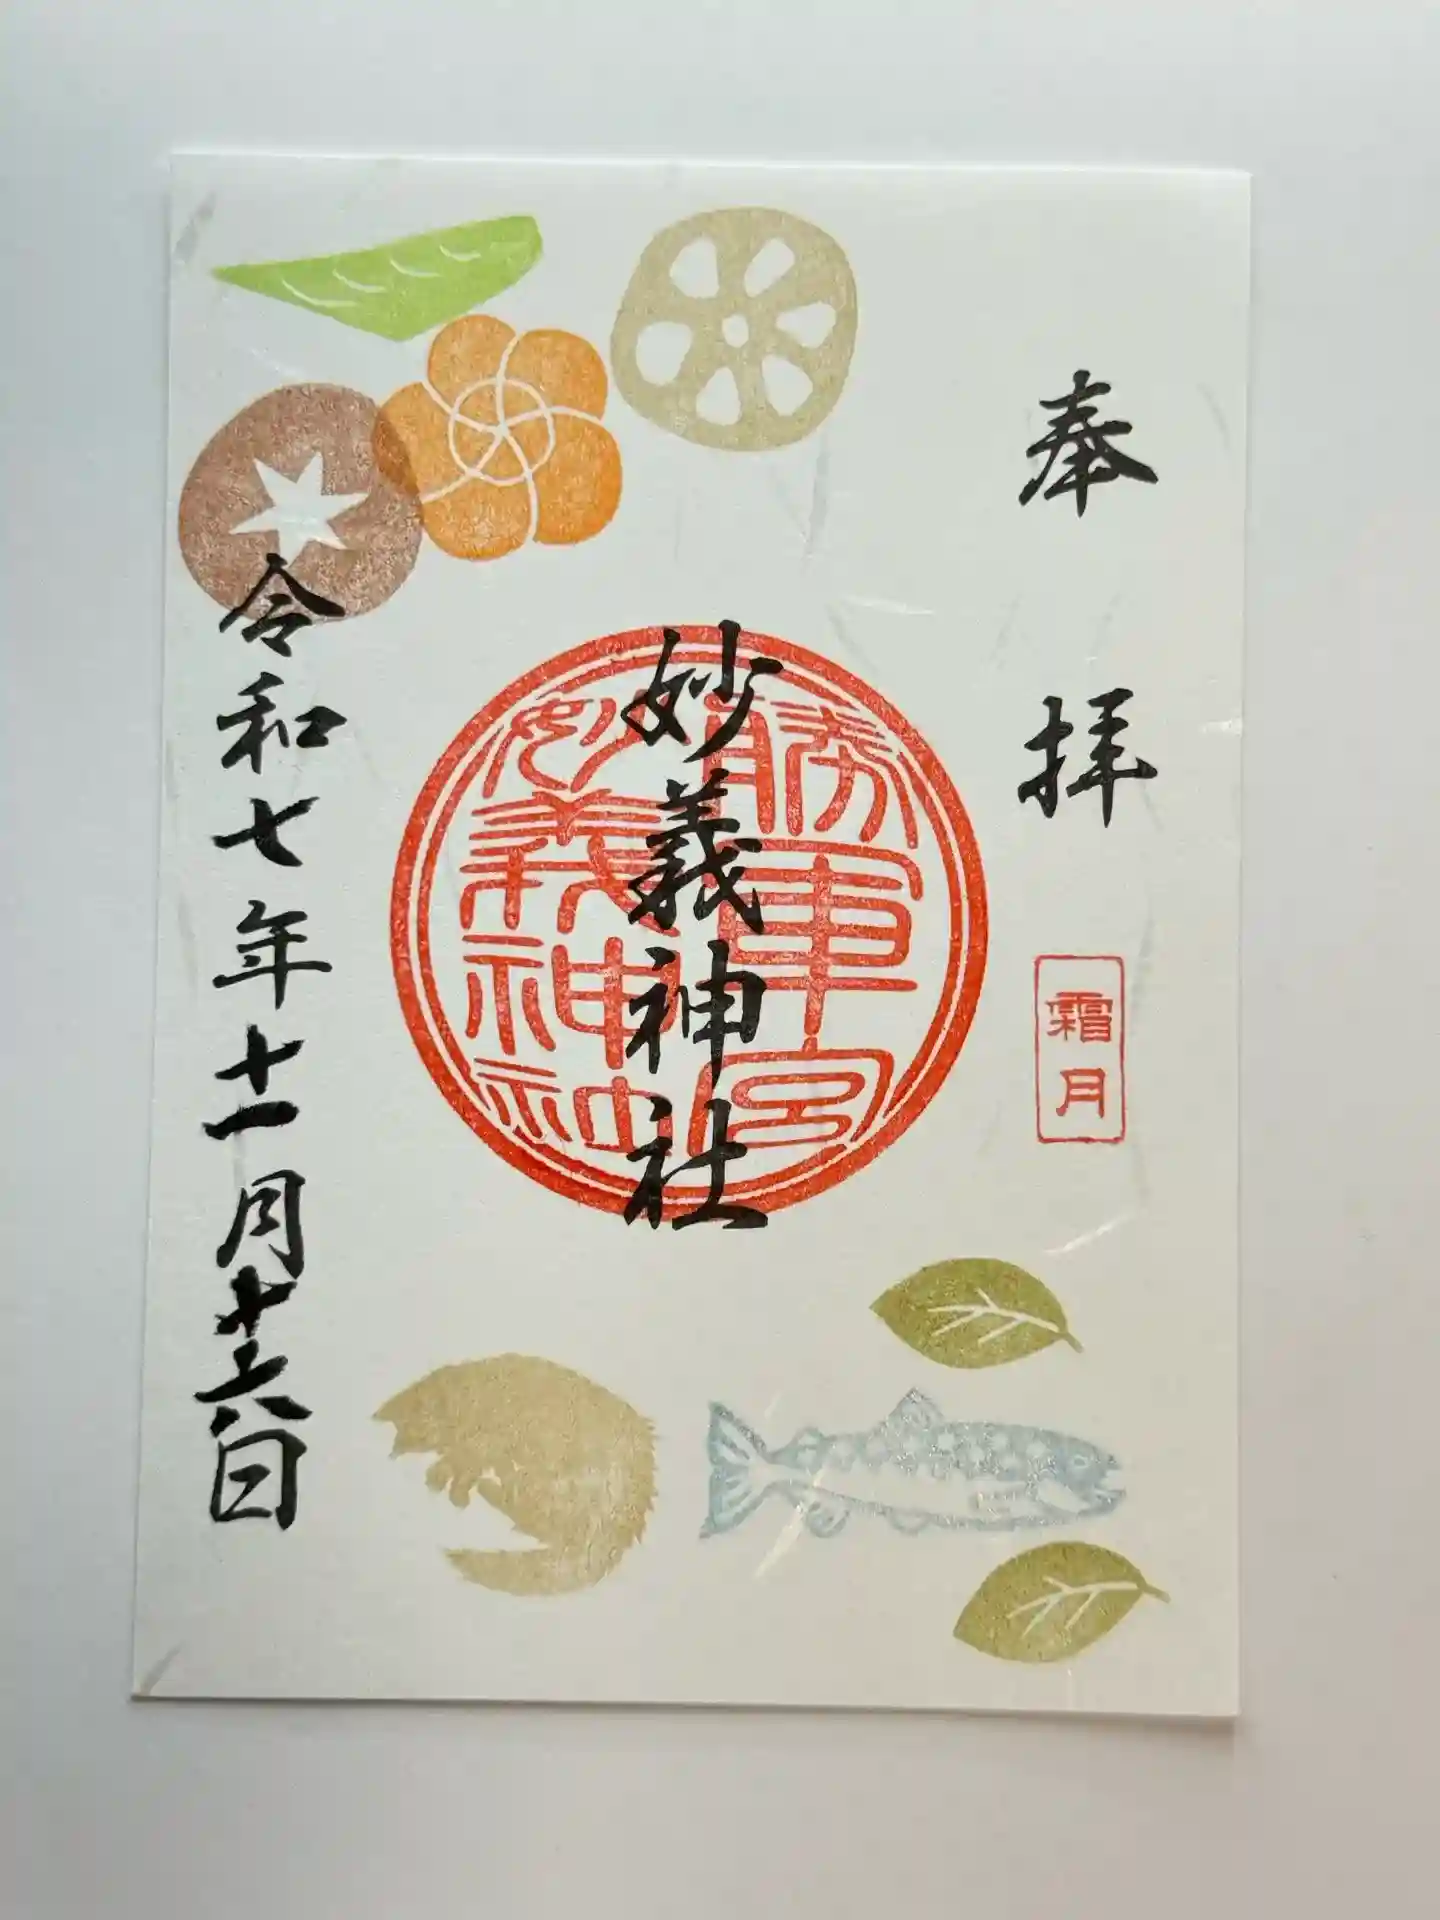 奉拝
霜月
妙義神社
勝軍宮
妙義神社
令和七年十一月十六日